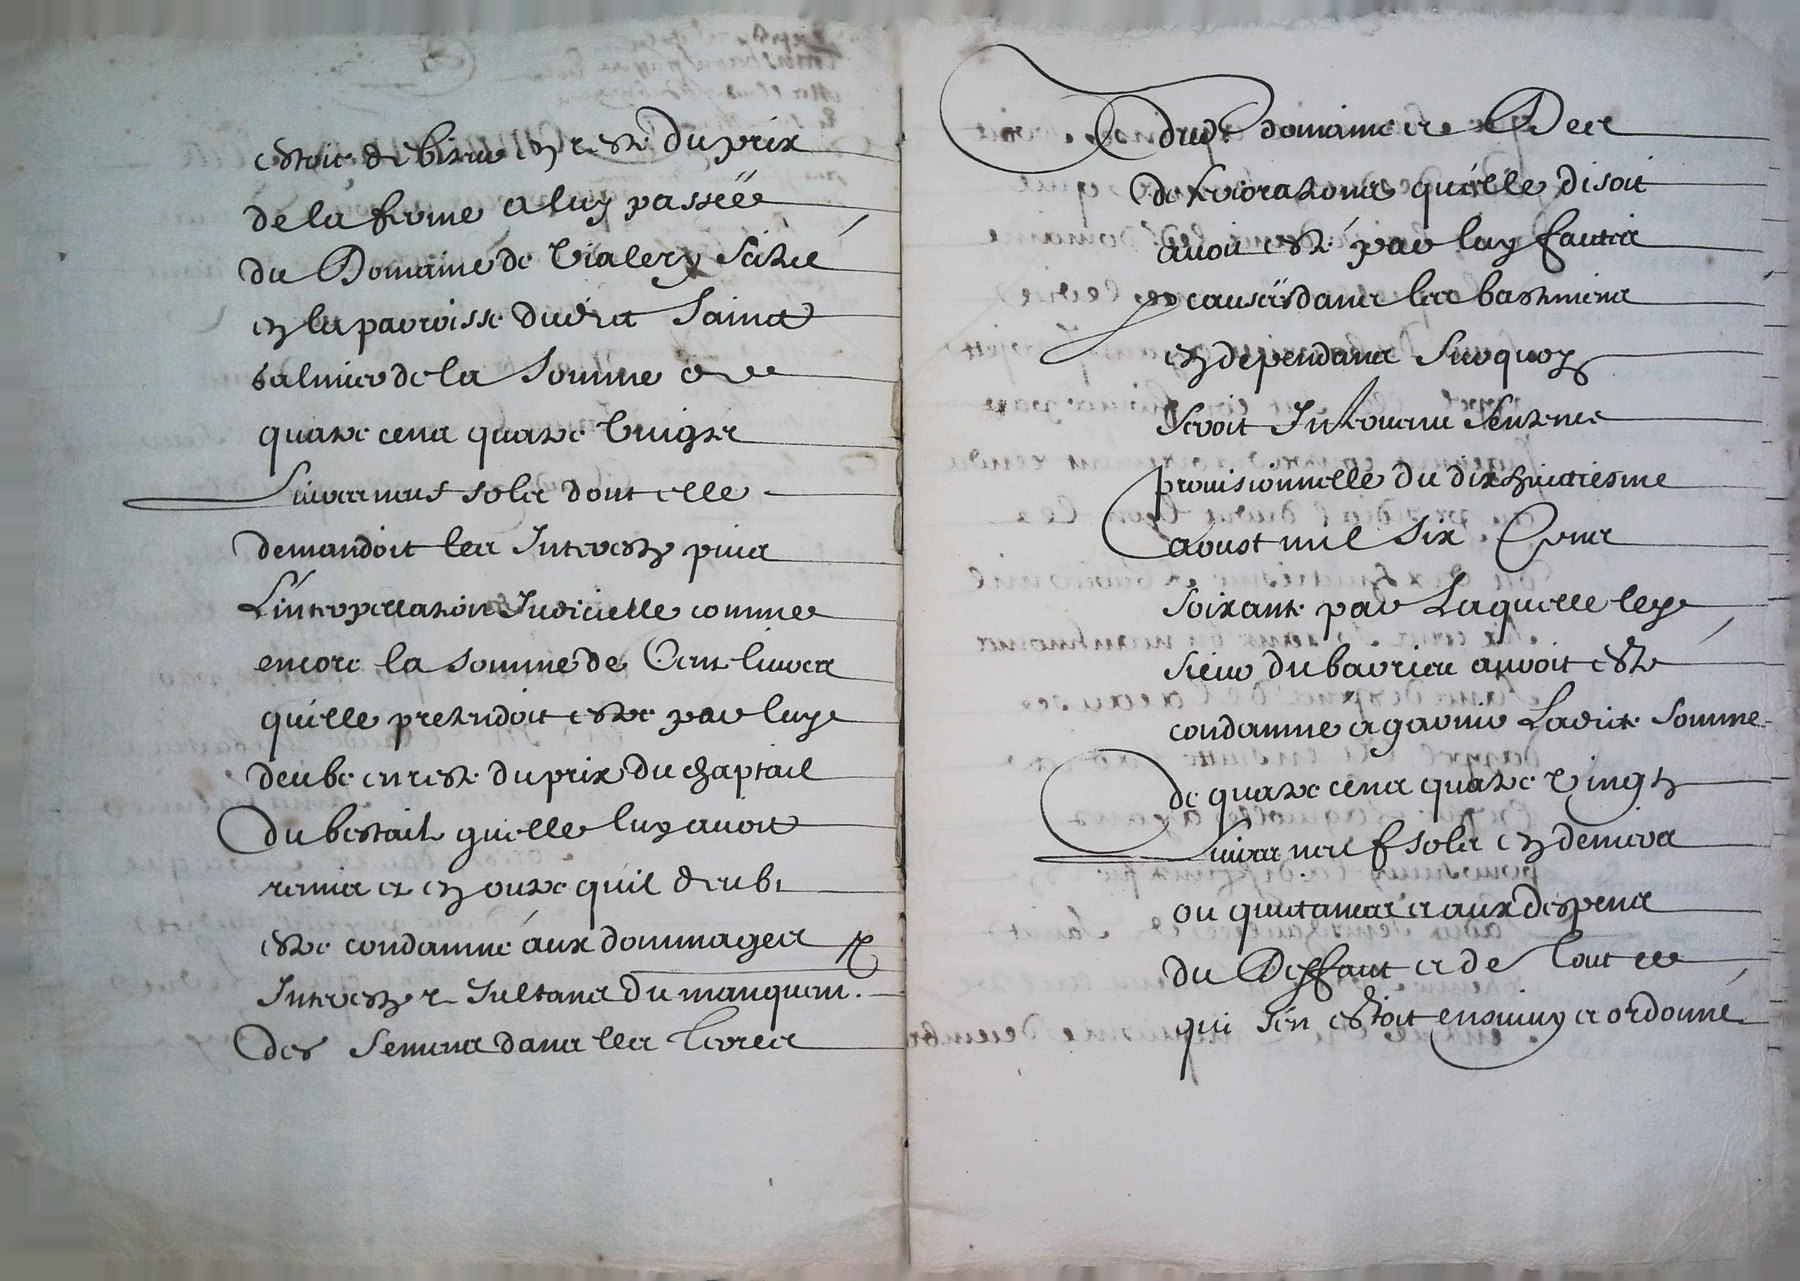 estoit debiteur en reste du prix
de la ferme a luy passéé
du Domaine de Vialery Scitué
en la parroisse dudict Sainct
Galmier de la Somme de
quatre cens quatre Vingtz
Livres neuf solz dont elle
demandoit les Interestz puis
L'interpellation Judicielle comme
encore la somme de Cent livres
qu'elle pretendoit estre par luy
deube en reste du prix du chaptail
Du bestail qu'elle luy avoit
remis et en outre quil deubt
estre condamné aux dommages &
Interestz resultans du manquem.
des Semens dans les terres
dud domaine et Des
deteriorations qu'elle disoit
avoir esté par luy faictes
et causéés dans les bastimens
en dependans Surquoy
Seroit Intervenu Sentence
provisionnelle du dix huictiesme
aoust mil Six Cens
soixante par Laquelle ledit
sieur du bavrier auroit esté
condamne a garnir Ladicte Somme
de quatre cens quatre Vingtz
Livres neuf solz en deniers
ou quictances et aux despens
du Deffaut et de Tout ce
qui s'en estoit ensuivy et ordonné